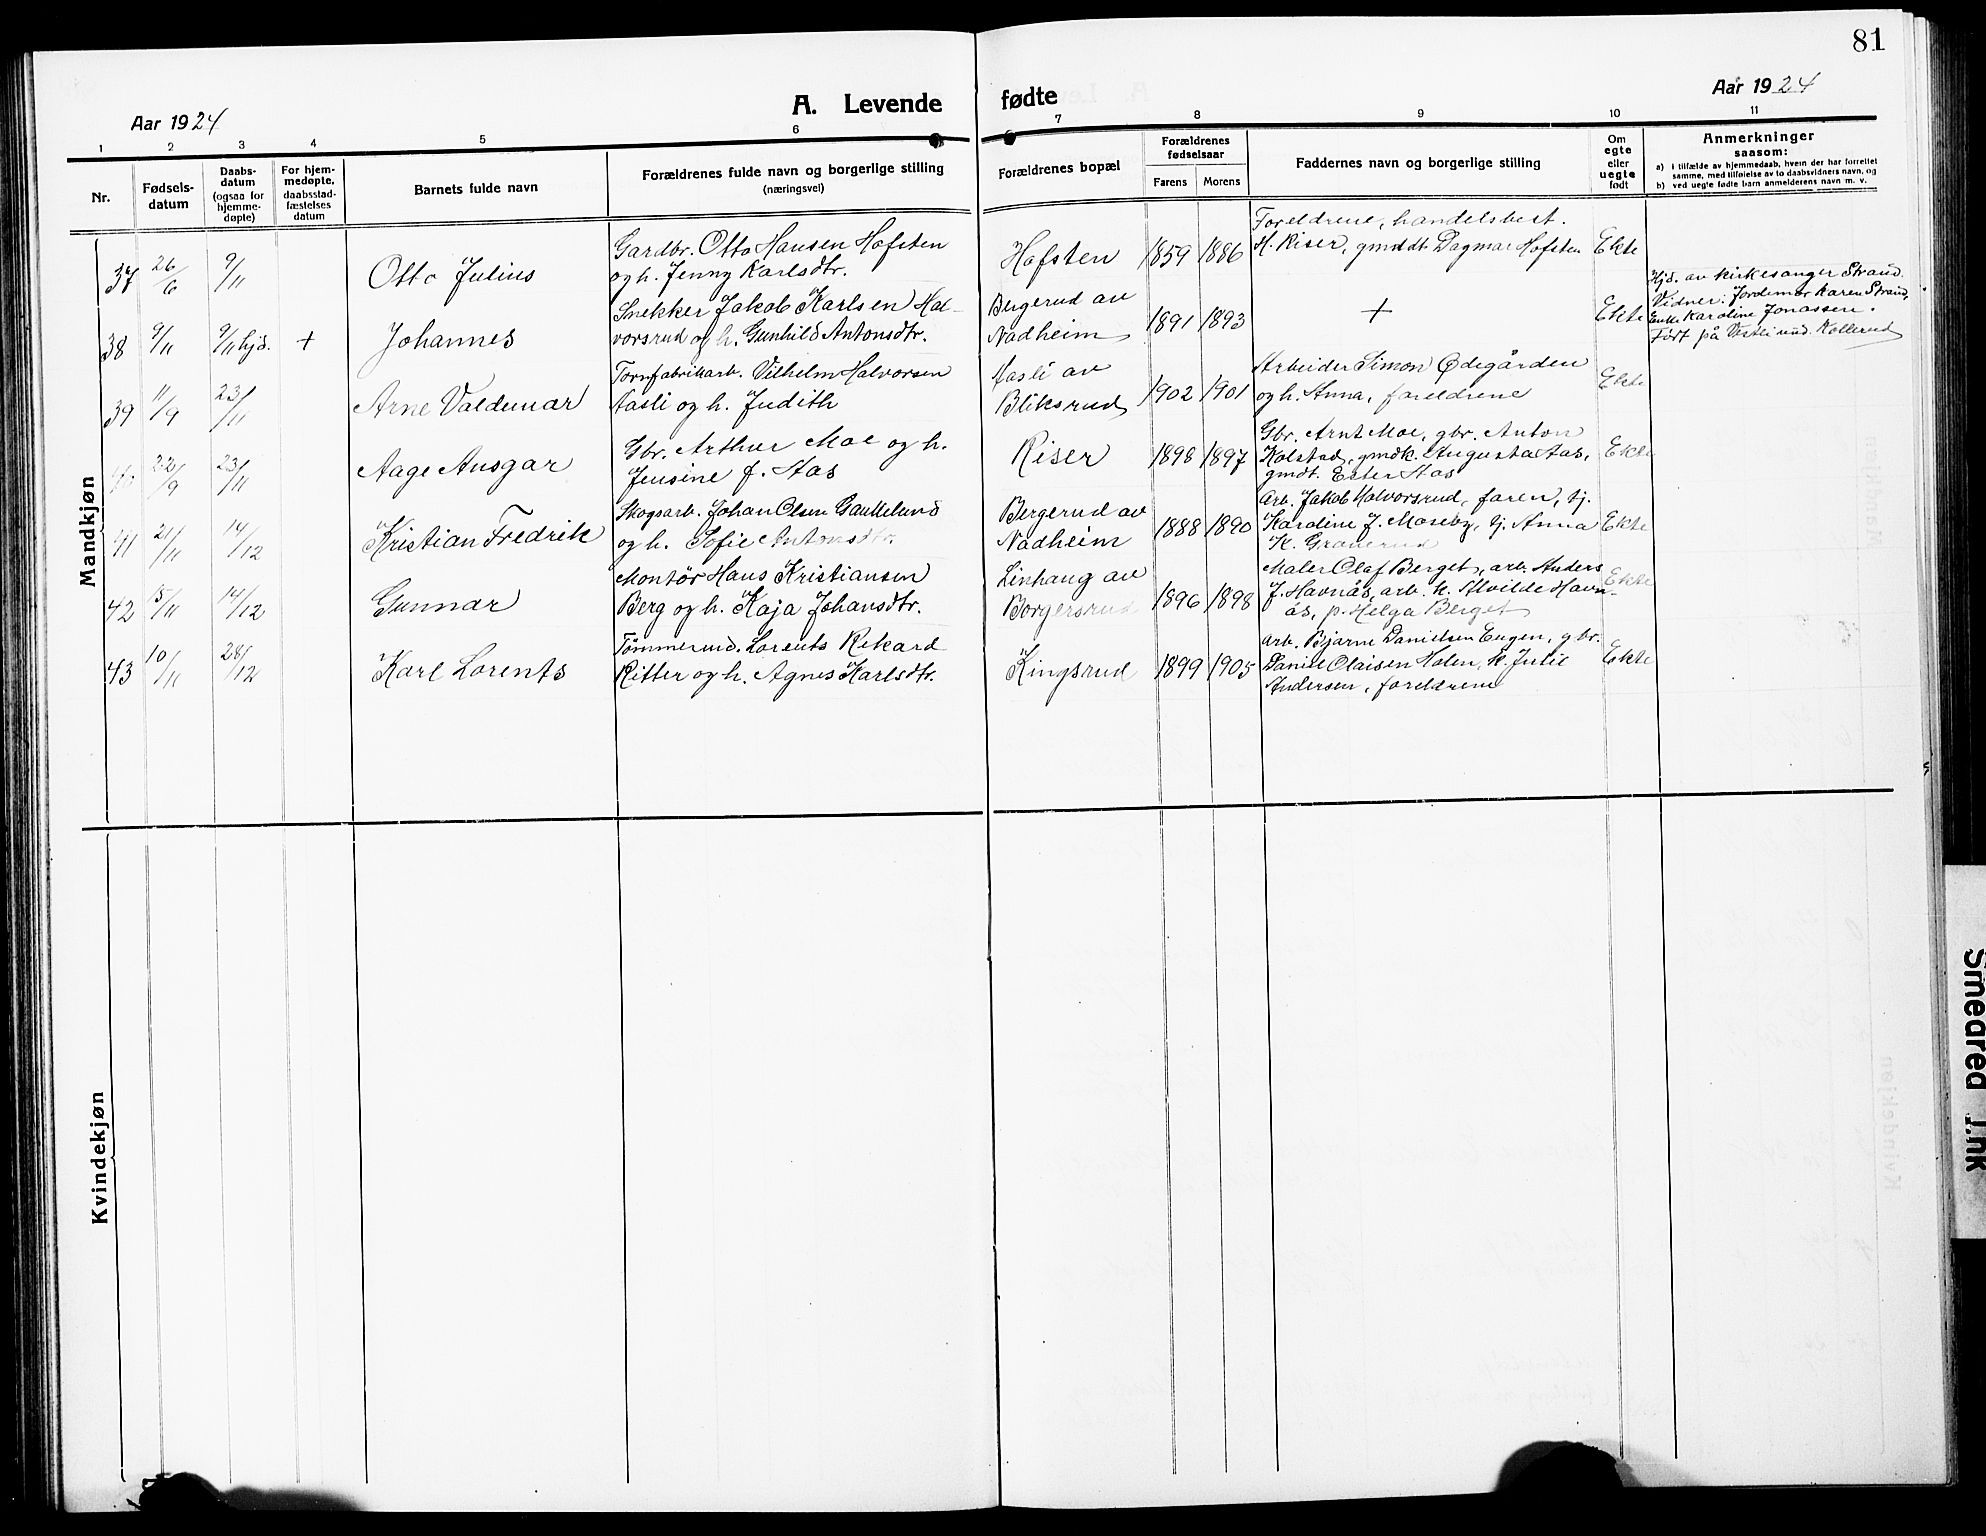 81
Aar 1924
A. Levende fødte
Aar 1924
1 2 3 4 5 6 7 8 9 10 11
Nr.
Fødsels-
datum
Daabs-
datum
(ogsaa for
hjemme-
døpte)
For hjem-
medøpte,
daabsstad-
fæstelses
datum
Barnets fulde navn
Forældrenes fulde navn og borgerlige stilling
(næringsvei)
Forældrenes bopæl
Forældrenes
fødselsaar
Farens Morens
Faddernes navn og borgerlige stilling
Om
egte
eller
uegte
født
Anmerkninger
saasom:
a) i tilfælde av hjemmedaab, hvem der har forrettet
samme, med tilføielse av to daabsvidners navn, og
b) ved uegte fødte barn anmelderens navn m. v.
Mandkjøn
37 26/6 9/11
Otto Julius
Gardbr. Otto Hansen Hofsten
og h. Jenny Karlsdtr.
Hofsten
1859 1886
Foreldrene, handelsbest.
H. Riser, gmddt. Dagmar Hofsten
Ekte
38 9/11 9/11 hjd. +
Johannes
Snekker Jakob Karlsen Hal-
vorsrud og h. Gunhild Antonsdtr.
Bergerud av
Nadheim
1891 1893
+
Ekte
Hjd. av kirkesanger Strand.
Vidner: Jordemor Karen Strand,
Enke Karoline Jonassen.
Født på Vestli und. Kollerud
39 11/9 23/11
Arne Valdemar
Tornfabrikarb. Vilhelm Halvorsen
Aasli og h. Judith
Aasli av
Bliksrud
1902 1901
Arbeider Simon Ødegården
og h. Anna, foreldrene
Ekte
40 22/9 23/11
Aage Ansgar
Gbr. Arthur Moe og h.
Jensine f. Aas
Riser
1898 1897
Gbr. Arnt Moe, gbr. Anton
Kolstad, gmdk. Augusta Aas,
gmdt. Ester Aas
Ekte
41 21/11 14/12
Kristian Fredrik
Skogsarb. Johan Olsen Gaukelund
og h. Sofie Antonsdtr.
Bergerud av
Nadheim
1888 1890
Arb. Jakob Halvorsrud, faren, tj.
Karoline J. Moseby, tj. Anna
K. Granerud
Ekte
42 15/11 14/12
Gunnar
Montör Hans Kristiansen
Berg og h. Kaja Johansdtr.
Linhaug av
Borgersrud
1896 1898
Maler Olaf Berget, arb. Anders
J. Havnås, arb. k. Alvilde Havn-
ås, p. Helga Berget
Ekte
43 10/11 28/12
Karl Lorents
Tømmermd. Lorents Rikard
Ritter og h. Agnes Karlsdtr.
Kingsrud
1899 1905
Arb. Bjarne Danielsen Engen, gbr.
Daniel Olaisen Holen, k. Julie
Andersen, foreldrene
Ekte
Kvindekjøn
Smeared Ink